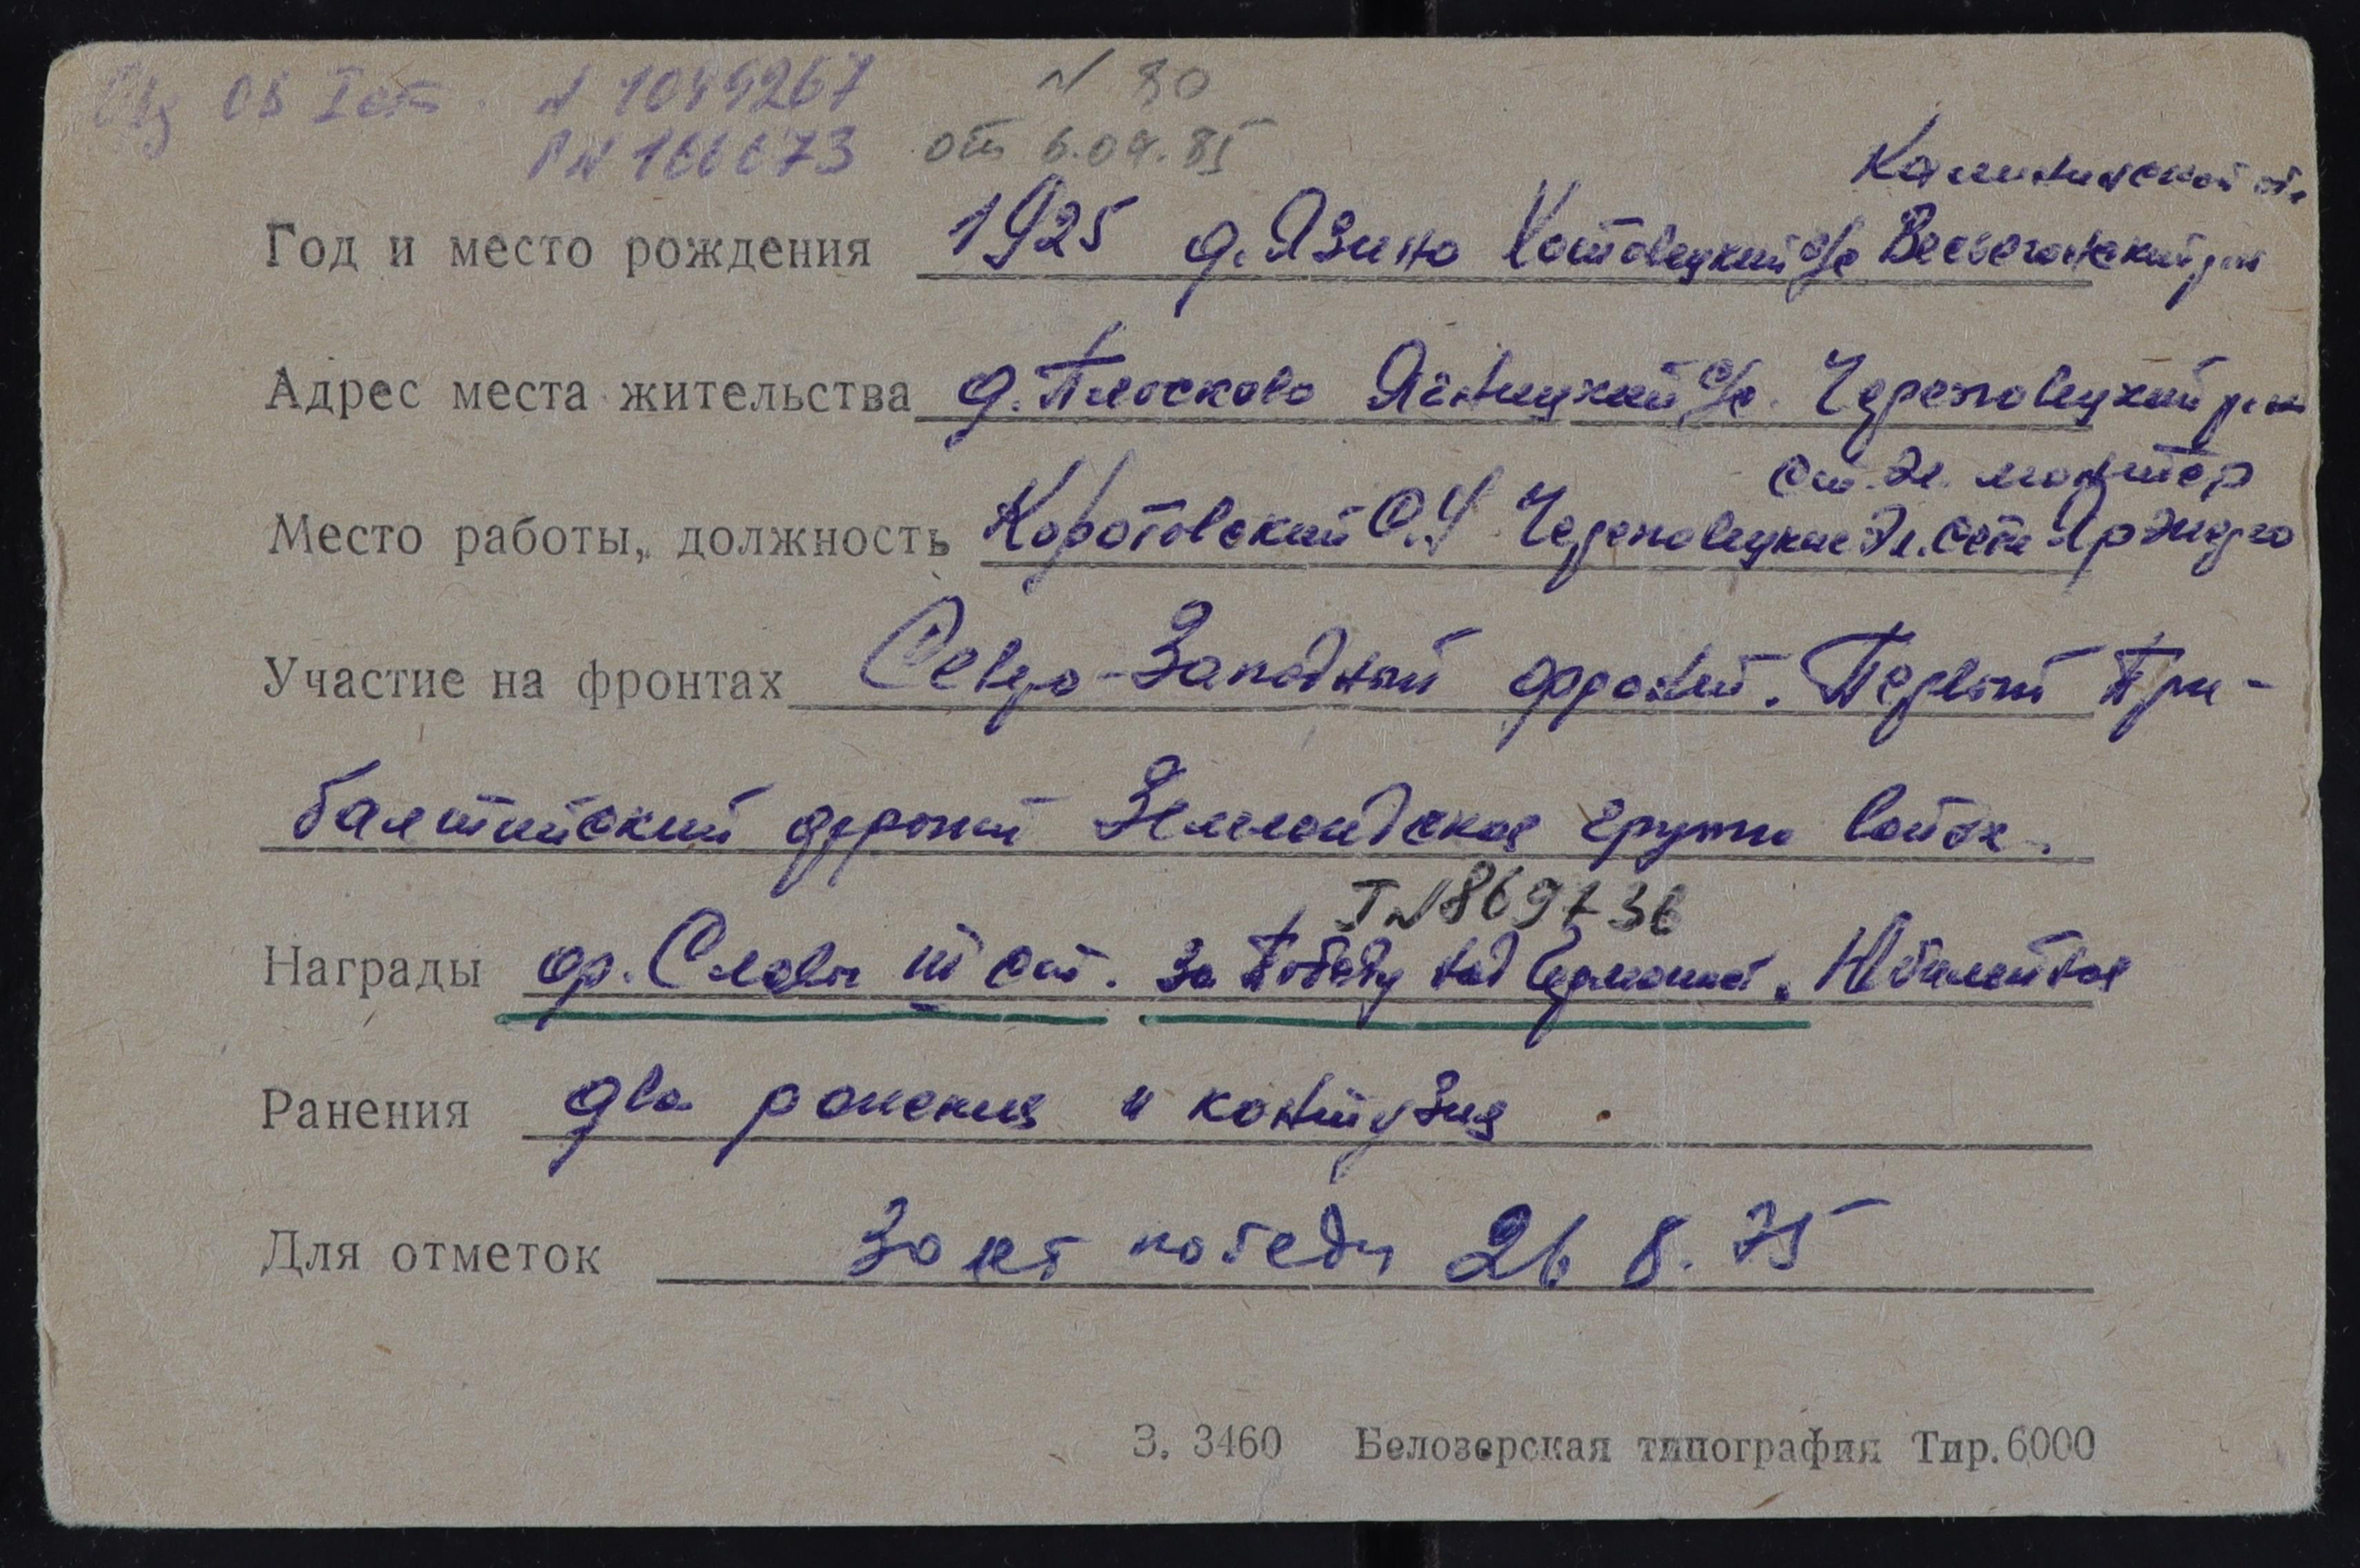 ОВ I ст. № 1089267 № 80
166673 от 6.04.85
Калининской об.
Год и место рождения 1925 д. Язино с/с Весьегонский р-н
Адрес места жительства д. Плосково Ягницкий с/с. Череповецкий р-н
ст. эл. монтёр
Место работы, должность Коротовский Череповецкие эл. сети
Участие на фронтах Северо-Западный фронт. Первый При-
балтийский фронт Земландская группа войск.
№ 869736
Награды ор. Славы III ст. за Победу над Германией. Юбилейная
Ранения два ранения и контузия
Для отметок 30 лет победы 26 8. 75
З. 3460 Белозерская типография Тир. 6000